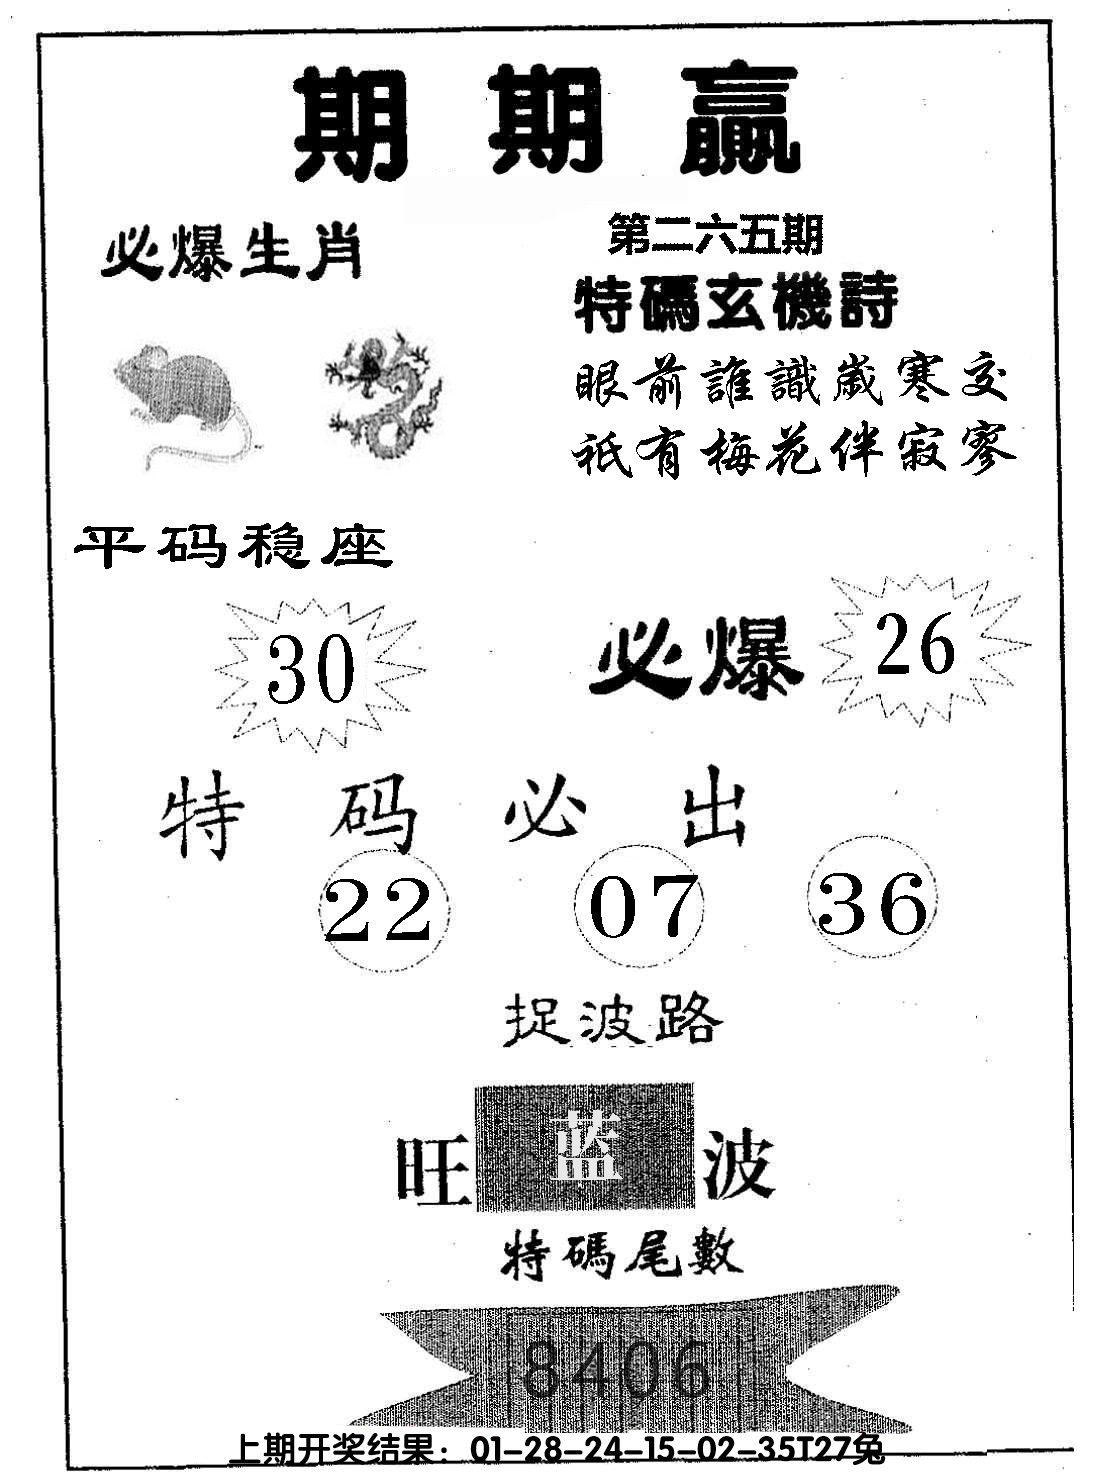 期期赢
必爆生肖
第二六五期
特碼玄機詩
眼前誰識歲寒交
祇有梅花伴寂寥
平码稳座
30
必爆 26
特码必出
22 07 36
捉波路
旺蓝波
特碼尾數
8406
上期开奖结果：01-28-24-15-02-35T27兔